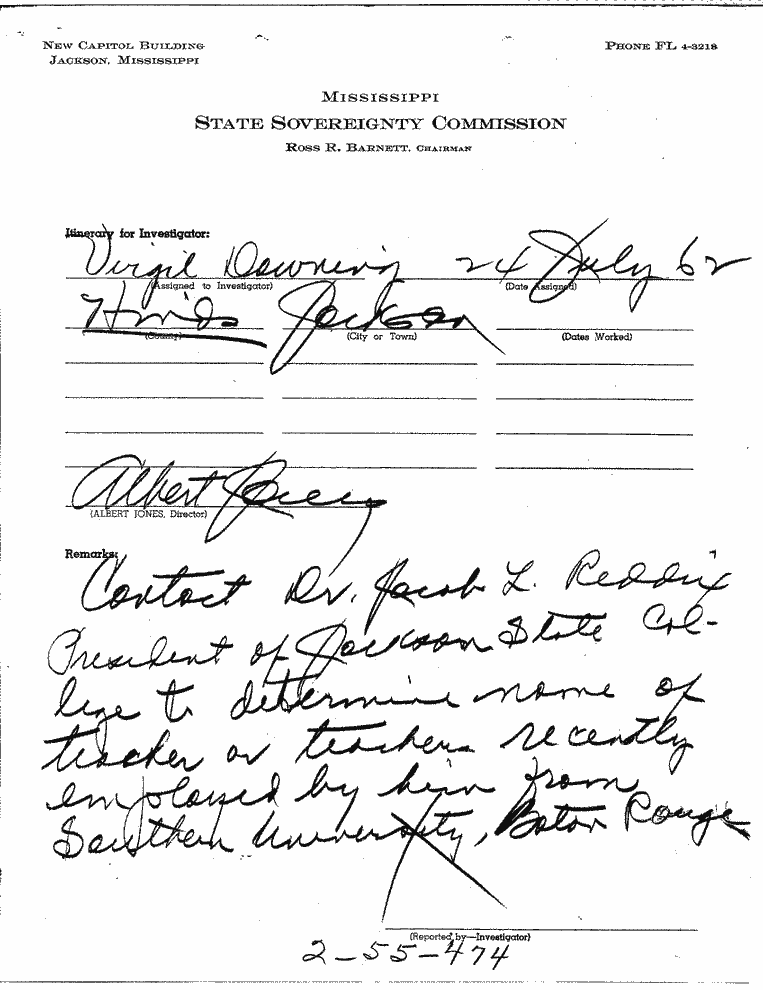 NEW CAPITOL BUILDING
JACKSON, MISSISSIPPI
PHONE FL 4-3218
MISSISSIPPI
STATE SOVEREIGNTY COMMISSION
ROSS R. BARNETT, CHAIRMAN
Itinerary for Investigator:
Virgil Downing 24 July 62
(Assigned to Investigator) (Date Assigned)
Hinds Jackson
(County) (City or Town) (Dates Worked)
Albert Jones
(ALBERT JONES, Director)
Remarks:
Contact Dr. Jacob L. Reddix
President of Jackson State Col-
lege to determine name of
teacher or teachers recently
employed by him from
Southern University, Baton Rouge
(Reported by—Investigator)
2-55-474